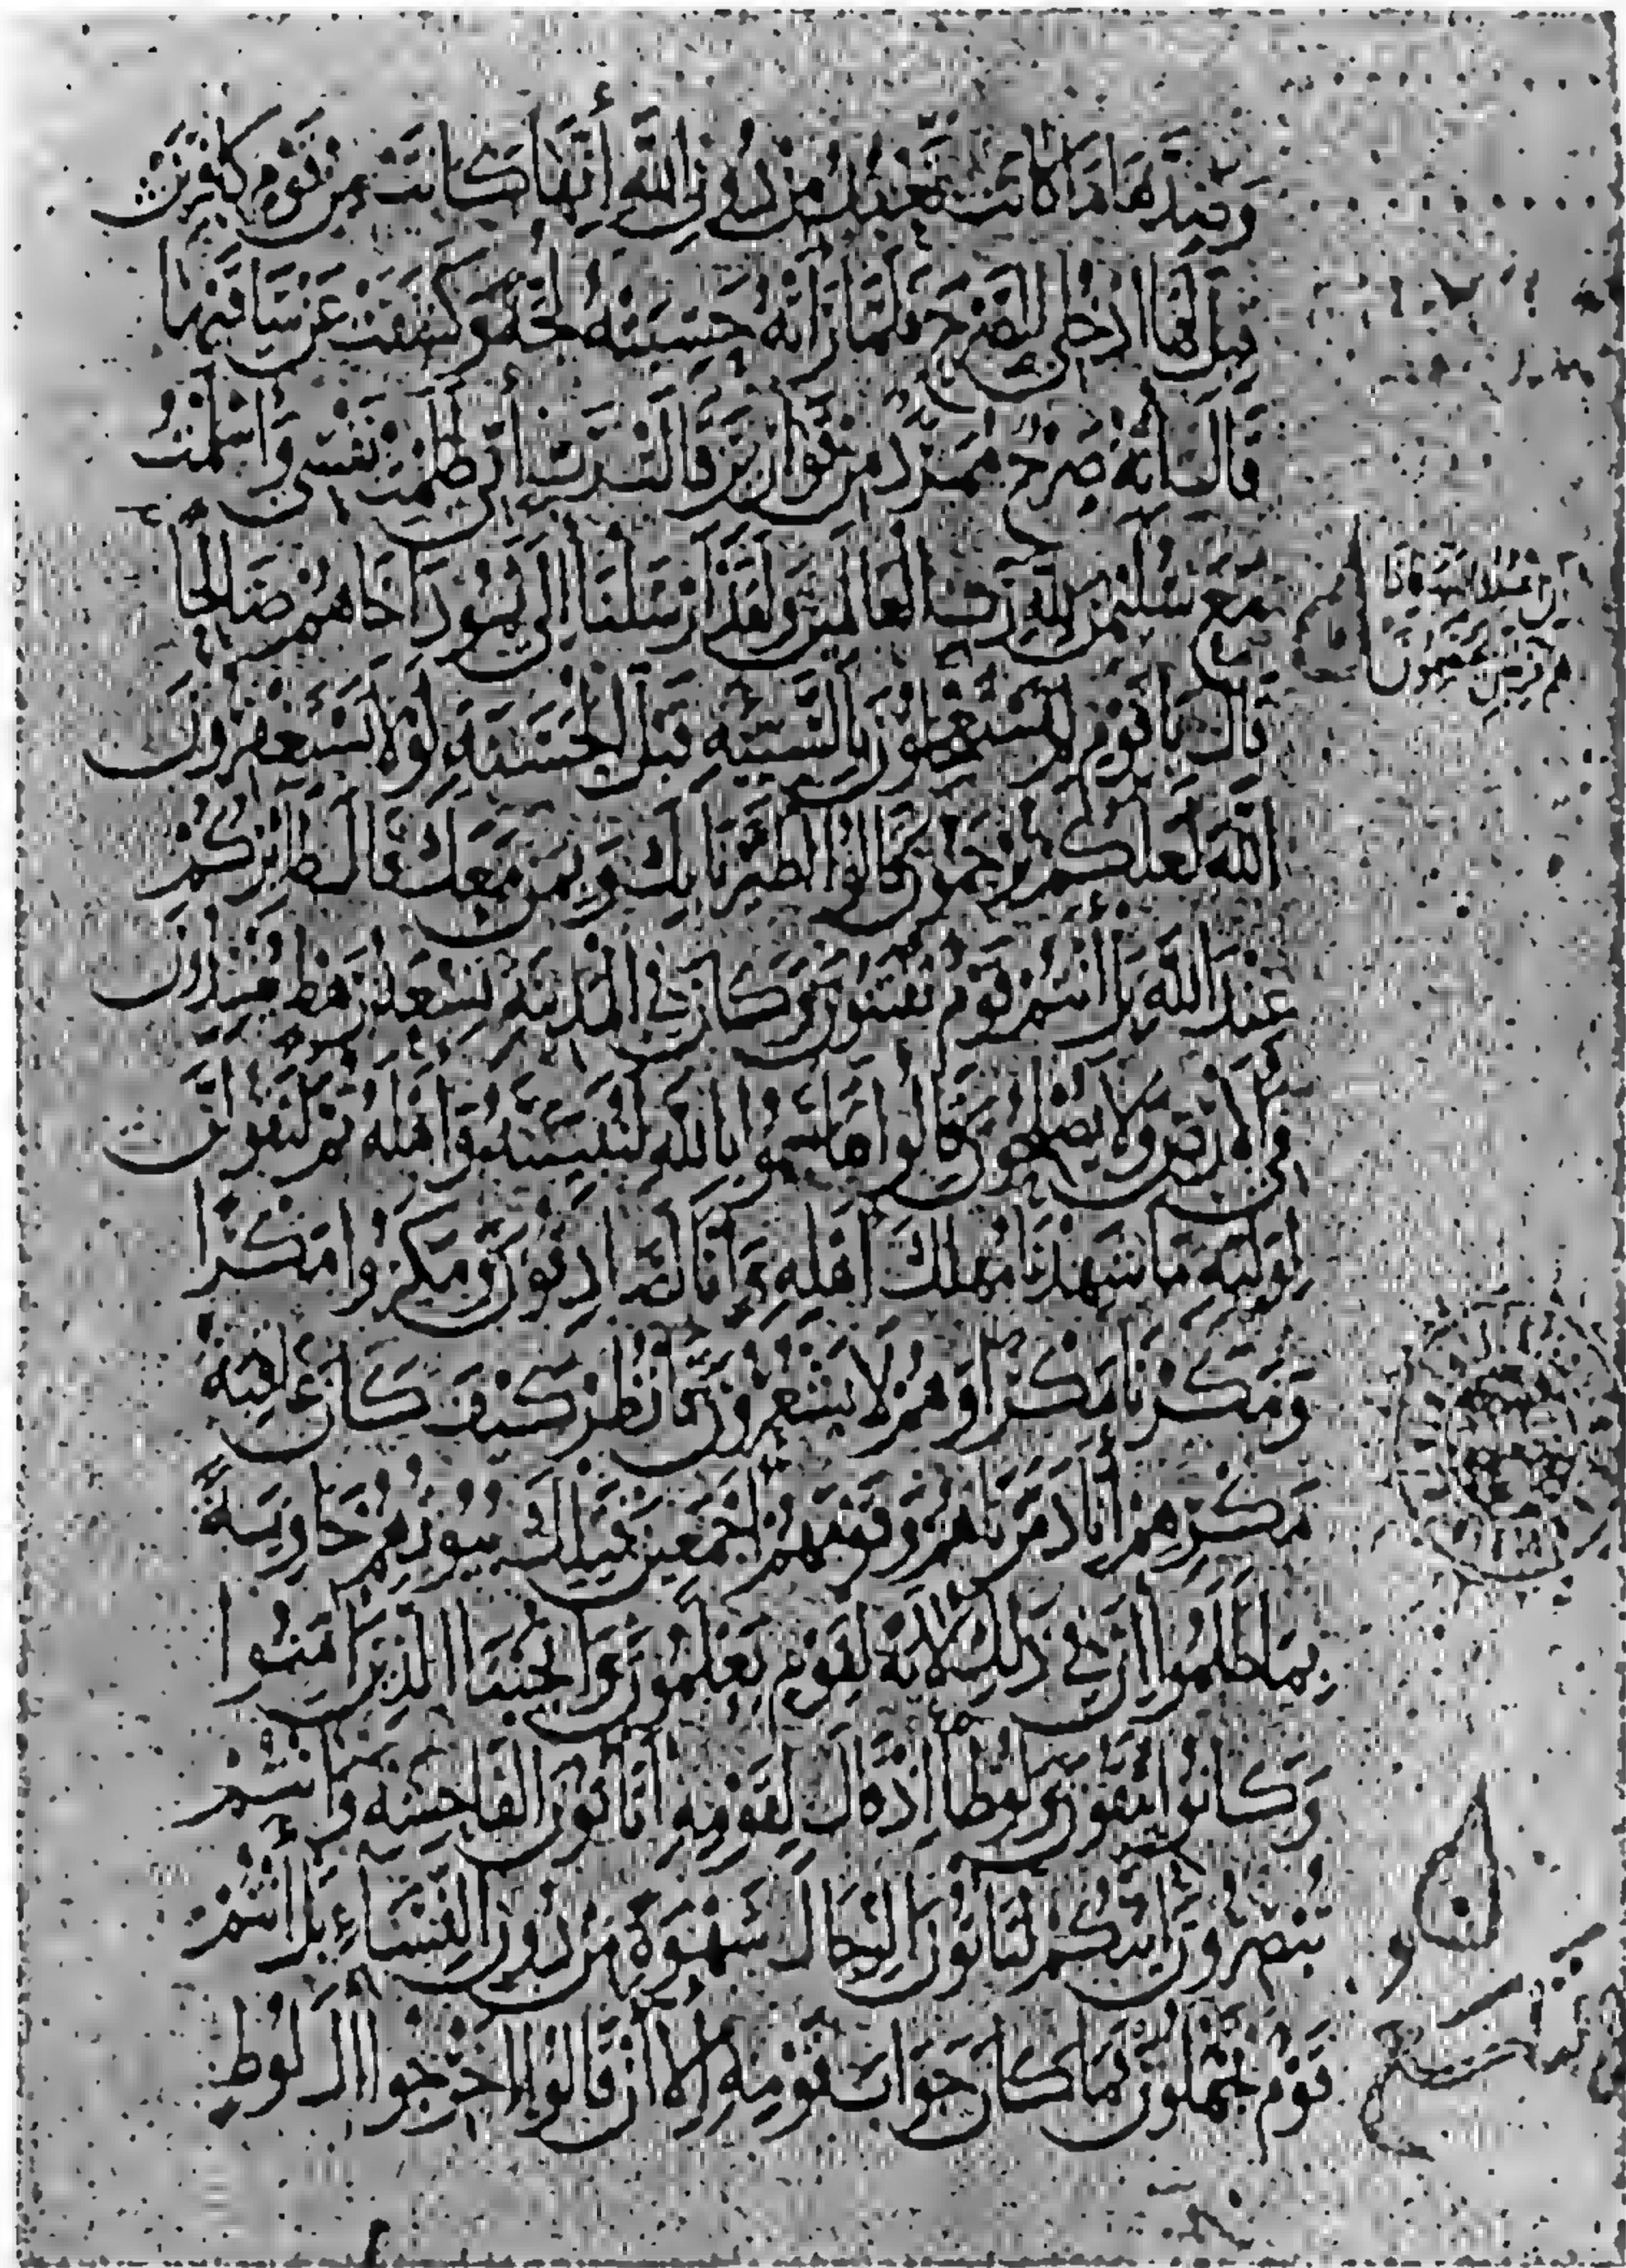 وَصَدَّهَا مَا كَانَت تَّعْبُدُ مِنْ دُونِ اللَّهِ أَنَّهَا كَانَتْ مِنْ قَوْمٍ كٰفِرِينَ
قِيلَ لَهَا ادْخُلِي الصَّرْحَ فَلَمَّا رَأَتْهُ حَسِبَتْهُ لُجَّةً وَكَشَفَتْ عَنْ سَاقَيْهَا
قَالَ إِنَّهُ صَرْحٌ مُمَرَّدٌ مِنْ قَوَارِيرَ قَالَتْ رَبِّ إِنِّي ظَلَمْتُ نَفْسِي وَأَسْلَمْتُ
مَعَ سُلَيْمٰنَ لِلَّهِ رَبِّ الْعَالَمِينَ وَلَقَدْ أَرْسَلْنَا إِلَى ثَمُودَ أَخَاهُمْ صَالِحًا
أَنِ اعْبُدُوا اللَّهَ فَإِذَا
هُمْ فَرِيقَانِ يَخْتَصِمُونَ
قَالَ يَا قَوْمِ لِمَ تَسْتَعْجِلُونَ بِالسَّيِّئَةِ قَبْلَ الْحَسَنَةِ لَوْلَا تَسْتَغْفِرُونَ
اللَّهَ لَعَلَّكُمْ تُرْحَمُونَ قَالُوا اطَّيَّرْنَا بِكَ وَبِمَنْ مَعَكَ قَالَ طَائِرُكُمْ
عِنْدَ اللَّهِ بَلْ أَنْتُمْ قَوْمٌ تُفْتَنُونَ وَكَانَ فِي الْمَدِينَةِ تِسْعَةُ رَهْطٍ يُفْسِدُونَ
فِي الْأَرْضِ وَلَا يُصْلِحُونَ قَالُوا تَقَاسَمُوا بِاللَّهِ لَنُبَيِّتَنَّهُ وَأَهْلَهُ ثُمَّ لَنَقُولَنَّ
لِوَلِيِّهِ مَا شَهِدْنَا مَهْلِكَ أَهْلِهِ وَإِنَّا لَصَادِقُونَ وَمَكَرُوا مَكْرًا
وَمَكَرْنَا مَكْرًا وَهُمْ لَا يَشْعُرُونَ فَانْظُرْ كَيْفَ كَانَ عٰقِبَةُ
مَكْرِهِمْ أَنَّا دَمَّرْنَاهُمْ وَقَوْمَهُمْ أَجْمَعِينَ فَتِلْكَ بُيُوتُهُمْ خَاوِيَةً
بِمَا ظَلَمُوا إِنَّ فِي ذَلِكَ لَآيَةً لِقَوْمٍ يَعْلَمُونَ وَأَنْجَيْنَا الَّذِينَ آمَنُوا
وَكَانُوا يَتَّقُونَ وَلُوطًا إِذْ قَالَ لِقَوْمِهِ أَتَأْتُونَ الْفَاحِشَةَ وَأَنْتُمْ
تُبْصِرُونَ أَئِنَّكُمْ لَتَأْتُونَ الرِّجَالَ شَهْوَةً مِنْ دُونِ النِّسَاءِ بَلْ أَنْتُمْ
قَوْمٌ تَجْهَلُونَ فَمَا كَانَ جَوَابَ قَوْمِهِ إِلَّا أَنْ قَالُوا أَخْرِجُوا آلَ لُوطٍ